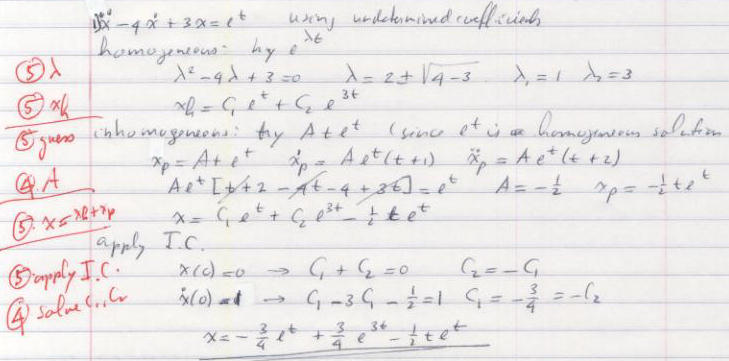 ẍ - 4ẋ + 3x = e^t using undetermined coefficients
homogeneous: try e^{λt}
⑤ λ λ² - 4λ + 3 = 0 λ = 2 ± √(4-3) λ₁ = 1 λ₂ = 3
⑤ xh xh = C₁ e^t + C₂ e^{3t}
⑤ guess inhomogeneous: try A t e^t (since e^t is a homogeneous solution
x_p = A t e^t ẋ_p = A e^t (t+1) ẍ_p = A e^t (t+2)
④ A A e^t [t + 2 - 4t - 4 + 3t] = e^t A = -1/2 x_p = -1/2 t e^t
⑤ x = xh + xp x = C₁ e^t + C₂ e^{3t} - 1/2 t e^t
apply I.C.
⑤ apply I.C. x(0) = 0 → C₁ + C₂ = 0 C₂ = -C₁
④ solve C₁, C₂ ẋ(0) = 1 → C₁ - 3C₁ - 1/2 = 1 C₁ = -3/4 = -C₂
x = -3/4 e^t + 3/4 e^{3t} - 1/2 t e^t